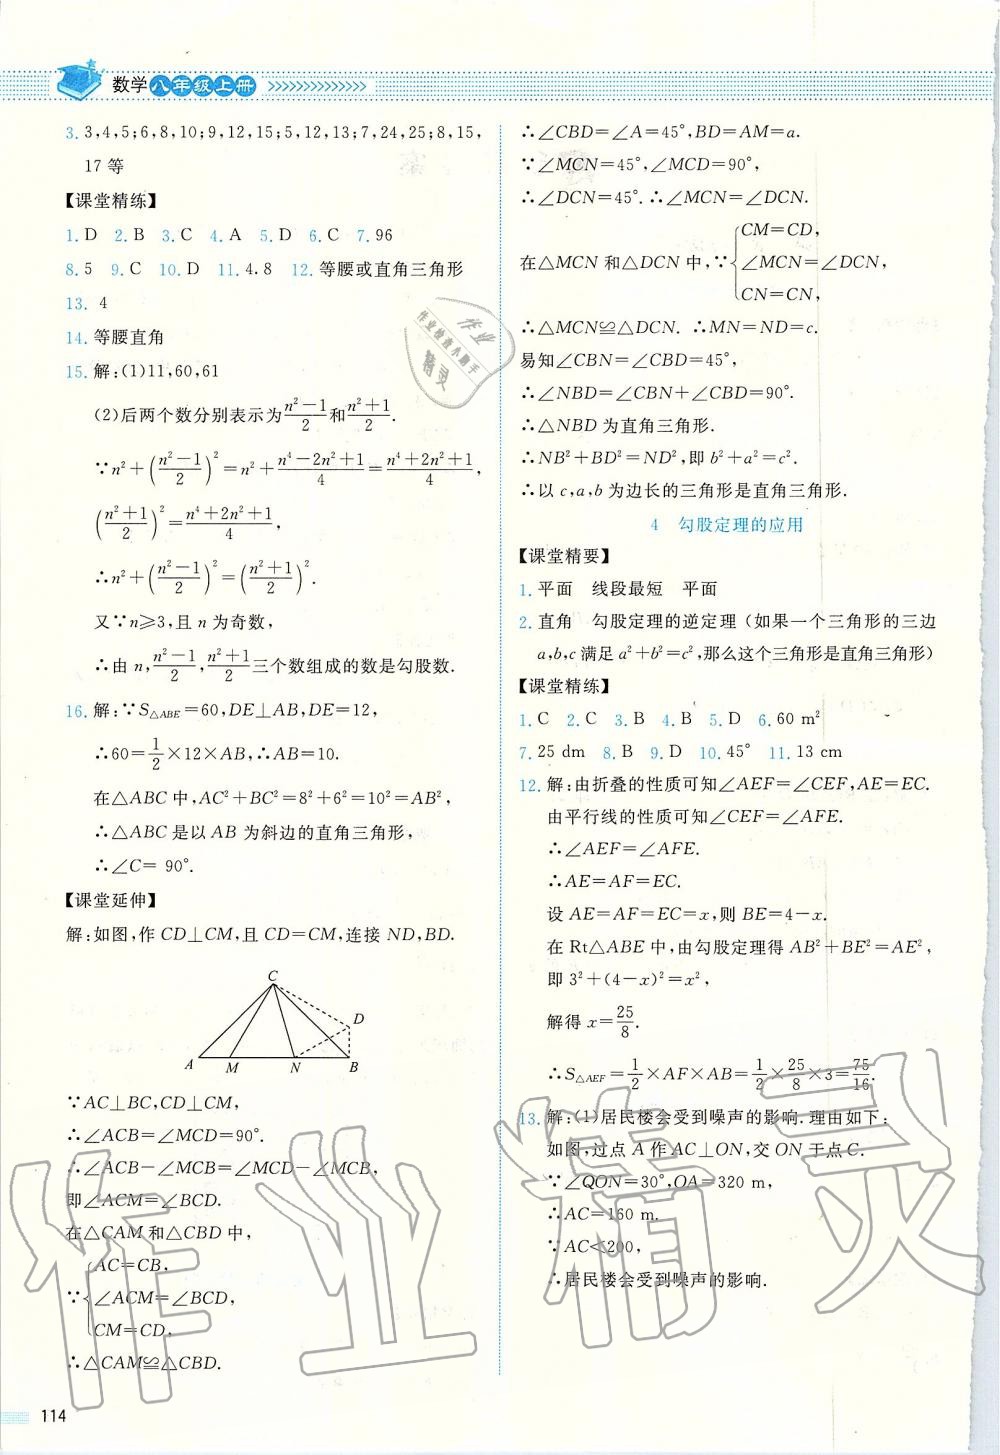 数学八年级上册
3. 3,4,5;6,8,10;9,12,15;5,12,13;7,24,25;8,15,
17 等
【课堂精练】
1. D  2. B  3. C  4. A  5. D  6. C  7. 96
8. 5  9. C  10. D  11. 4.8  12. 等腰或直角三角形
13. 4
14. 等腰直角
15. 解:(1)11,60,61
(2)后两个数分别表示为(n²－1)/2和(n²＋1)/2.
∵n²＋((n²－1)/2)²＝n²＋(n⁴－2n²＋1)/4＝(n⁴＋2n²＋1)/4,
((n²＋1)/2)²＝(n⁴＋2n²＋1)/4,
∴n²＋((n²－1)/2)²＝((n²＋1)/2)².
又∵n≥3,且 n 为奇数,
∴由 n,(n²－1)/2,(n²＋1)/2三个数组成的数是勾股数.
16. 解:∵S△ABE＝60,DE⊥AB,DE＝12,
∴60＝1/2×12×AB,∴AB＝10.
在△ABC 中,AC²＋BC²＝8²＋6²＝10²＝AB²,
∴△ABC 是以 AB 为斜边的直角三角形,
∴∠C＝ 90°.
【课堂延伸】
解:如图,作 CD⊥CM,且 CD＝CM,连接 ND,BD.
C
D
A M N B
∵AC⊥BC,CD⊥CM,
∴∠ACB＝∠MCD＝90°.
∴∠ACB－∠MCB＝∠MCD－∠MCB,
即∠ACM＝∠BCD.
在△CAM 和△CBD 中,
AC＝CB,
∵{∠ACM＝∠BCD,
CM＝CD,
∴△CAM≌△CBD.
114
∴∠CBD＝∠A＝45°,BD＝AM＝a.
∵∠MCN＝45°,∠MCD＝90°,
∴∠DCN＝45°.∴∠MCN＝∠DCN.
CM＝CD,
在△MCN 和△DCN 中,∵{∠MCN＝∠DCN,
CN＝CN,
∴△MCN≌△DCN. ∴MN＝ND＝c.
易知∠CBN＝∠CBD＝45°,
∴∠NBD＝∠CBN＋∠CBD＝90°.
∴△NBD 为直角三角形.
∴NB²＋BD²＝ND²,即 b²＋a²＝c².
∴以 c,a,b 为边长的三角形是直角三角形.
4 勾股定理的应用
【课堂精要】
1. 平面 线段最短 平面
2. 直角 勾股定理的逆定理(如果一个三角形的三边
a,b,c 满足 a²＋b²＝c²,那么这个三角形是直角三角形)
【课堂精练】
1. C  2. C  3. B  4. B  5. D  6. 60 m²
7. 25 dm  8. B  9. D  10. 45°  11. 13 cm
12. 解:由折叠的性质可知∠AEF＝∠CEF,AE＝EC.
由平行线的性质可知∠CEF＝∠AFE.
∴∠AEF＝∠AFE.
∴AE＝AF＝EC.
设 AE＝AF＝EC＝x,则 BE＝4－x.
在 Rt△ABE 中,由勾股定理得 AB²＋BE²＝AE²,
即 3²＋(4－x)²＝x²,
解得 x＝25/8.
∴S△AEF＝1/2×AF×AB＝1/2×25/8×3＝75/16.
13. 解:(1)居民楼会受到噪声的影响.理由如下:
如图,过点 A 作 AC⊥ON,交 ON 于点 C.
∵∠QON＝30°,OA＝320 m,
∴AC＝160 m.
∵AC＜200,
∴居民楼会受到噪声的影响.
作业
作业检查小助手
精灵
作业精灵